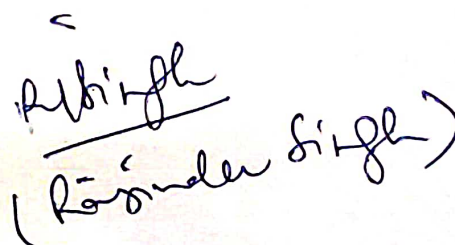 RSingh
(Rajinder Singh)